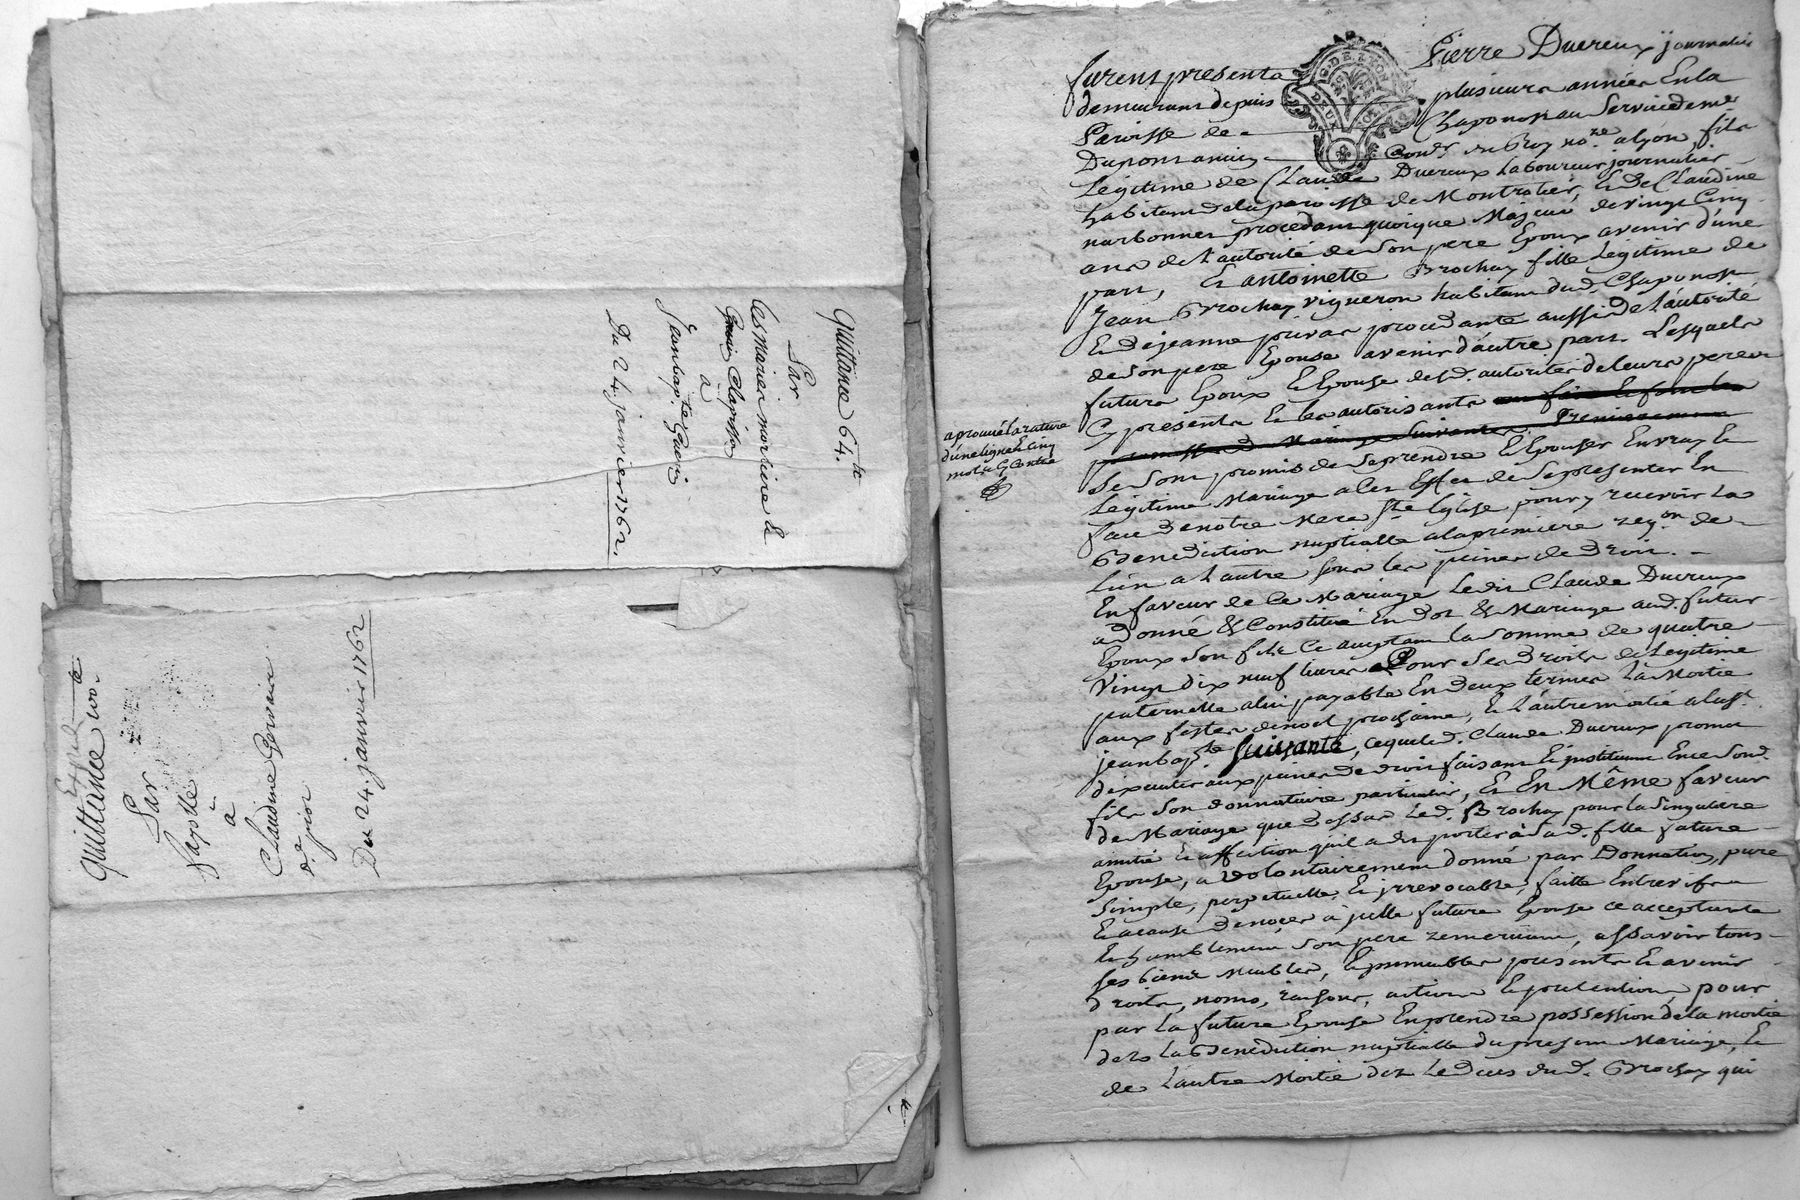 quittance 64.te
Par
les mariez morliere &
Clapisson
à
Jean bap.te Gueri
Du 24 janvier 1762.
Expéd
quittance 100.te
Par
à
Claudine Gervais
Du 24 janvier 1762
G. DE LYON
DEUX
Pierre Ducreux journalier
furent presents
demeurant depuis plusieurs années en la
Paroisse de Chaponost au Service de me
Dupont ancien Cons.r du Roy no.re a lyon, fils
Legitime de Claude Ducreux Laboureur journalier
habitant de la paroisse de Montrotier, & de Claudine
narbonnes procedant quoique Majeur de vingt Cinq
ans de l'autorité de Son pere Epoux avenir d'une
part, Et antoinette Brochay fille Legitime de
Jean Brochay vigneron habitant dud. Chaponost
& de jeanne procedante aussi de L'autorité
de Son pere Epouse avenir d'autre part. Lesquels
futurs Epoux & Epouse desd. autorités de leurs peres
Cy presents & les autorisants
aprouvé la rature
d'une ligne & Cinq
mots Cy Contre
Se Sont promis de Se prendre & Epouser En vray &
Legitime Mariage a Cet Effet de Se presenter En
face de notre Mere Ste Eglise pour y recevoir La
Benediction nuptialle a la premiere req.on de
L'un a L'autre Sous les peines de droit. —
En faveur de Ce Mariage Ledit Claude Ducreux
a donné & Constitué En dot & Mariage aud. futur
Epoux Son fils Ce aceptant La Somme de quatre
Vingt dix neuf livres Pour Ses droits de Legitime
paternelle a lui payable En deux termes La Moitié
aux festes de noel prochaine, & L'autre moitié a la St
jean bap.te Suivante, ce que led. Claude Ducreux promet
d'executer aux peines de droit faisant & instituant En ce Sond.
fils Son donnataire particulier, & En Même faveur
de Mariage que dessus Led. Brochay pour la Singuliere
amitié & affection qu'il a dit porter à Sad. fille future
Epouse, a volontairement donné par Donnation, pure
Simple, perpetuelle, & irrevocable, faitte Entre vifs
& a cause de noces à jcelle future Epouse ce acceptante
& humblement Son pere remerciant, assavoir tous
Ses biens Meubles, & immeubles presents & avenir
droits, noms, raisons, actions & pretentions, pour
par La future Epouse En prendre possession de la moitié
dez La Benediction nuptialle du present Mariage, &
de L'autre Moitié dez Le deces dud. Brochay qui